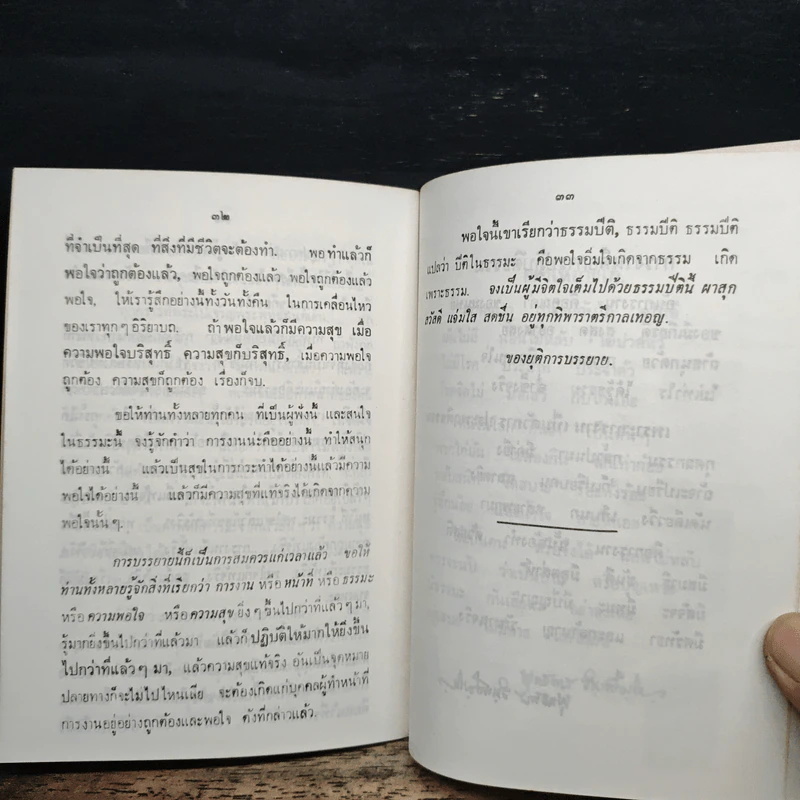 ๓๒
ที่จำเป็นที่สุด ที่สิ่งที่มีชีวิตจะต้องทำ. พอทำแล้วก็
พอใจว่าถูกต้องแล้ว, พอใจถูกต้องแล้ว พอใจถูกต้องแล้ว
พอใจ, ให้เรารู้สึกอย่างนี้ทั้งวันทั้งคืน ในการเคลื่อนไหว
ของเราทุกๆ อิริยาบถ. ถ้าพอใจแล้วก็มีความสุข เมื่อ
ความพอใจบริสุทธิ์ ความสุขก็บริสุทธิ์, เมื่อความพอใจ
ถูกต้อง ความสุขก็ถูกต้อง เรื่องก็จบ.
ขอให้ท่านทั้งหลายทุกคน ที่เป็นผู้ฟังนี้ และสนใจ
ในธรรมะนี้ จงรู้จักคำว่า การงานน่ะคืออย่างนี้ ทำให้สนุก
ได้อย่างนี้ แล้วเป็นสุขในการกระทำได้อย่างนี้แล้วมีความ
พอใจได้อย่างนี้ แล้วก็มีความสุขที่แท้จริงได้เกิดจากความ
พอใจนั้นๆ.
การบรรยายนี้ก็เป็นการสมควรแก่เวลาแล้ว ขอให้
ท่านทั้งหลายรู้จักสิ่งที่เรียกว่า การงาน หรือ หน้าที่ หรือ ธรรมะ
หรือ ความพอใจ หรือ ความสุข ยิ่งๆ ขึ้นไปกว่าที่แล้วๆ มา,
รู้มากยิ่งขึ้นไปกว่าที่แล้วมา แล้วก็ ปฏิบัติให้มากให้ยิ่งขึ้น
ไปกว่าที่แล้วๆ มา, แล้วความสุขแท้จริง อันเป็นจุดหมาย
ปลายทางก็จะไม่ไปไหนเสีย จะต้องเกิดแก่บุคคลผู้ทำหน้าที่
การงานอยู่อย่างถูกต้องและพอใจ ดังที่กล่าวแล้ว.
๓๓
พอใจนี้เขาเรียกว่าธรรมปีติ, ธรรมปีติ ธรรมปีติ
แปลว่า ปีติในธรรมะ คือพอใจอิ่มใจเกิดจากธรรม เกิด
เพราะธรรม. จงเป็นผู้มีจิตใจเต็มไปด้วยธรรมปีตินี้ ผาสุก
สวัสดี แจ่มใส สดชื่น อยู่ทุกทิพาราตรีกาลเทอญ.
ขอยุติการบรรยาย.